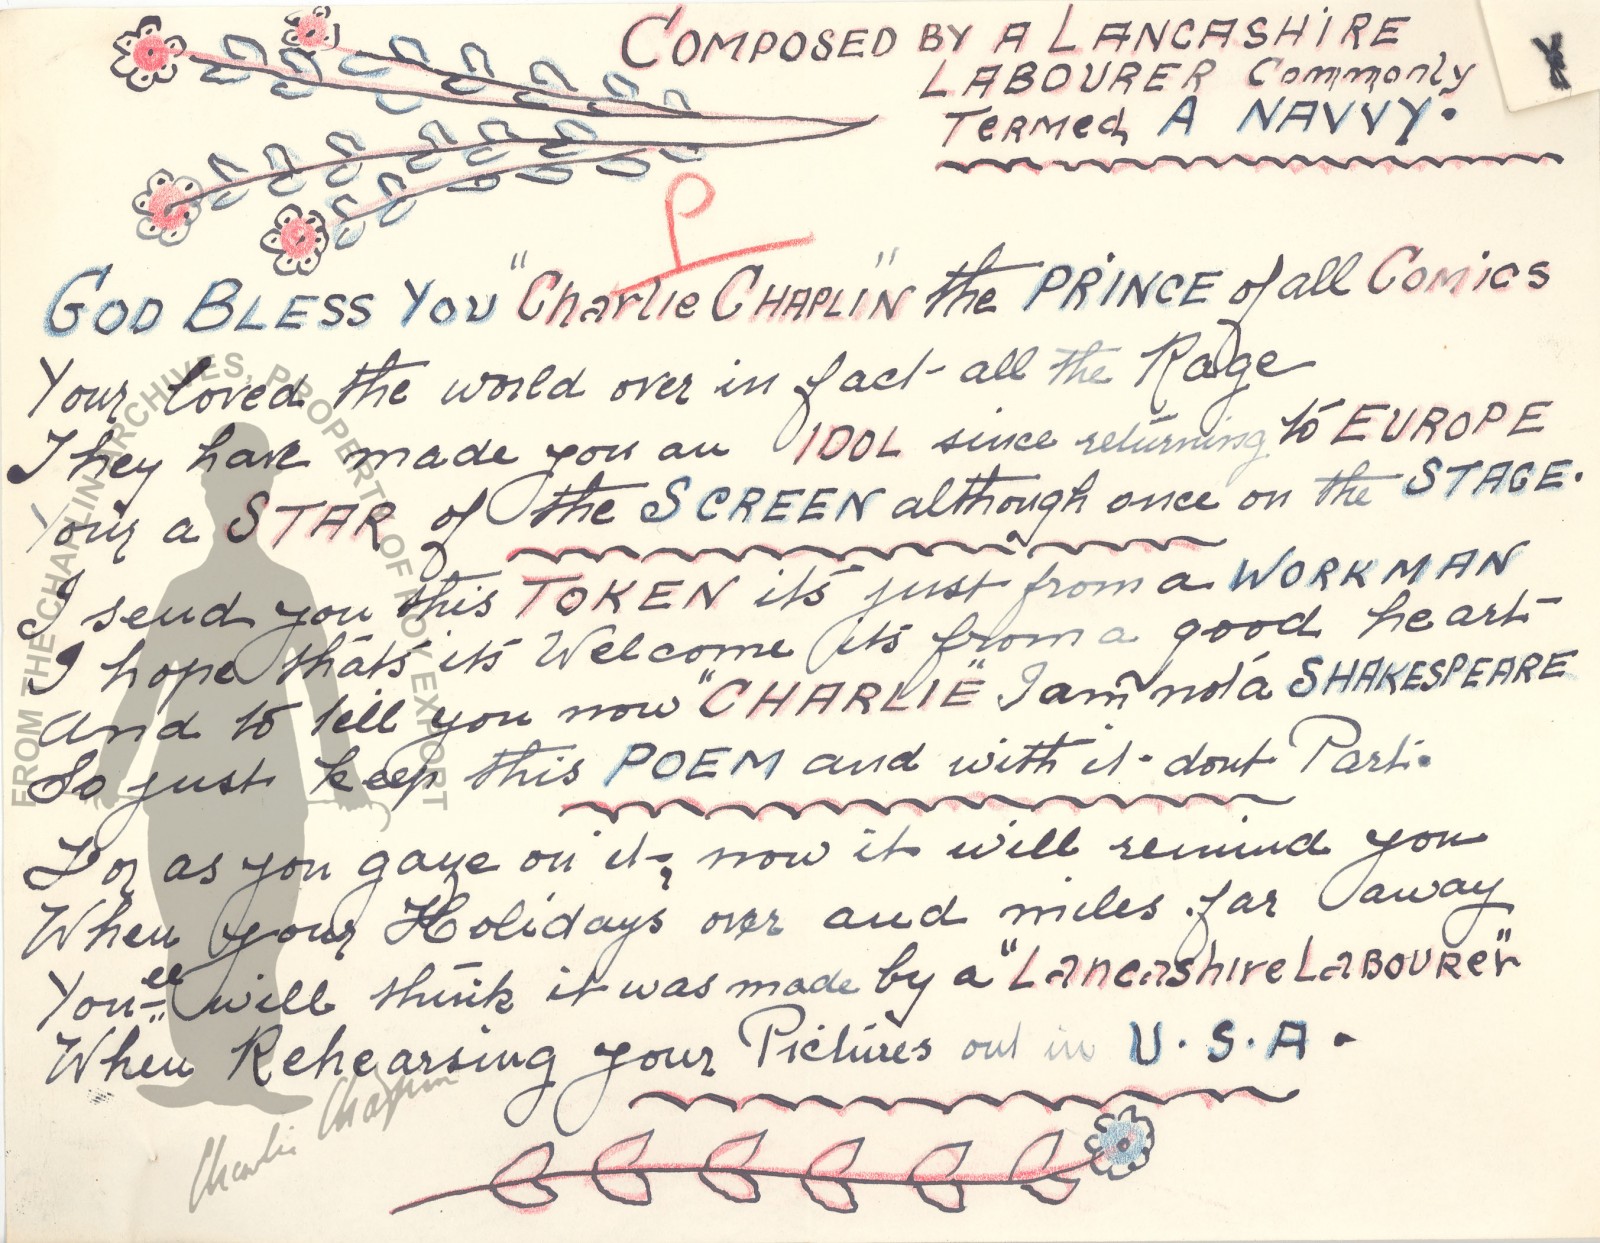 COMPOSED BY A LANCASHIRE
LABOURER Commonly
Termed A NAVVY.
P
GOD BLESS YOU "Charlie CHAPLIN" the PRINCE of all Comics
Your loved the world over in fact - all the Rage
They have made you an IDOL since returning to EUROPE
Your a STAR of the SCREEN although once on the STAGE.
I send you this TOKEN its just from a WORKMAN
I hope thats its Welcome its from a good heart
And to tell you now "CHARLIE" I am not a SHAKESPEARE
So just keep this POEM and with it - dont Part.
For as you gaze on it, now it will remind you
When your Holidays over and miles far away
You'll will think it was made by a "Lancashire LABOURer"
When Rehearsing your Pictures out in U.S.A.
FROM THE CHAPLIN ARCHIVES, PROPERTY OF ROY EXPORT
Charlie Chaplin